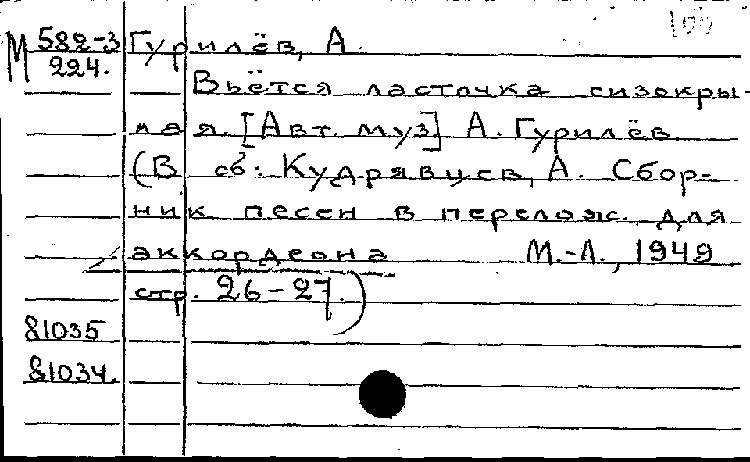 100
М 582-3 Гурилёв, А.
224.
Вьётся ласточка сизокры-
лая. [Авт. муз.] А. Гурилёв.
(В сб: Кудрявцев, А. Сбор-
ник песен в перелож. для
аккордеона М.-Л., 1949
стр. 26-27.)
81035
81034.